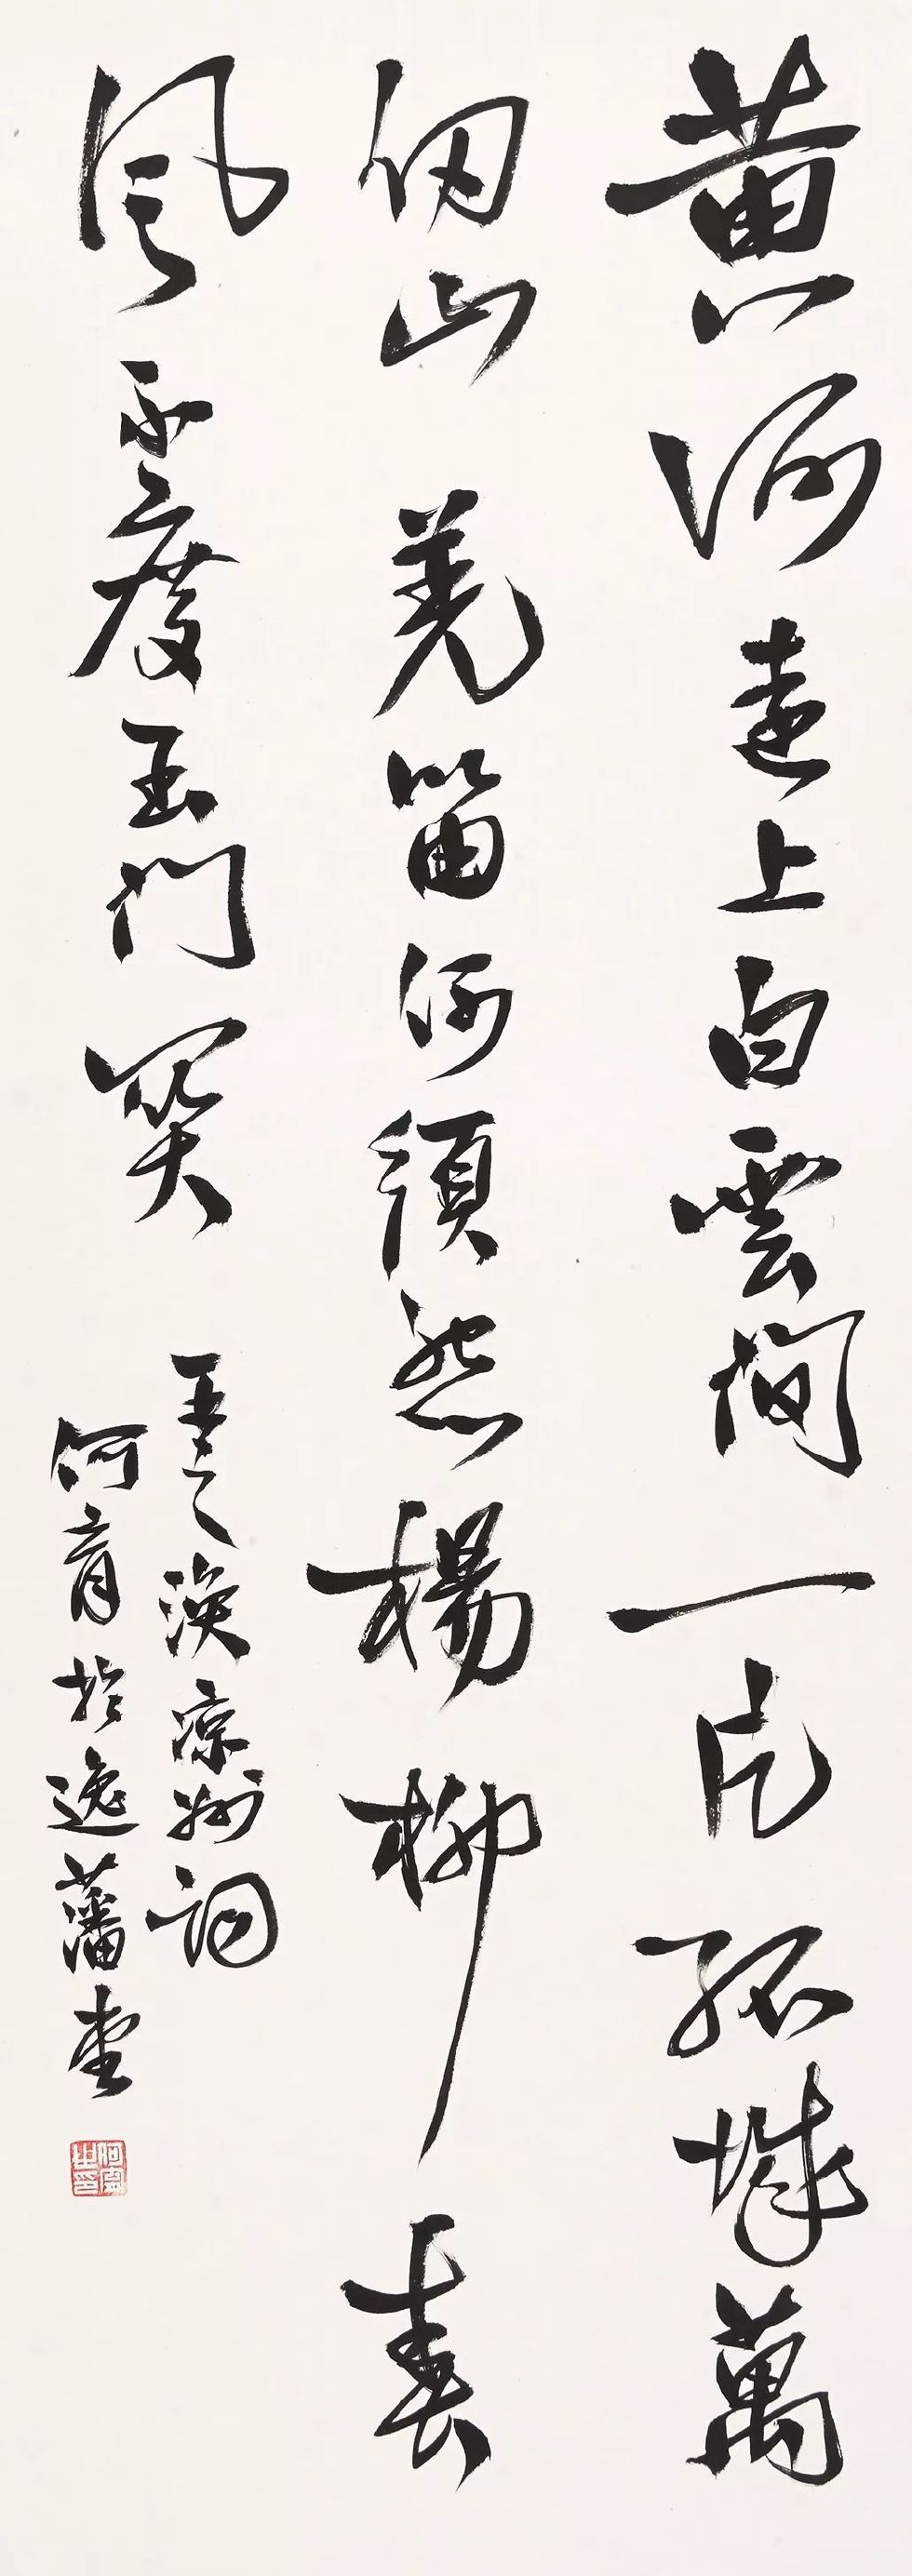 黄河遠上白雲間一片孤城萬
仞山羌笛何須怨楊柳春
風不度玉門關
王之渙涼州詞
何育於逸藩堂